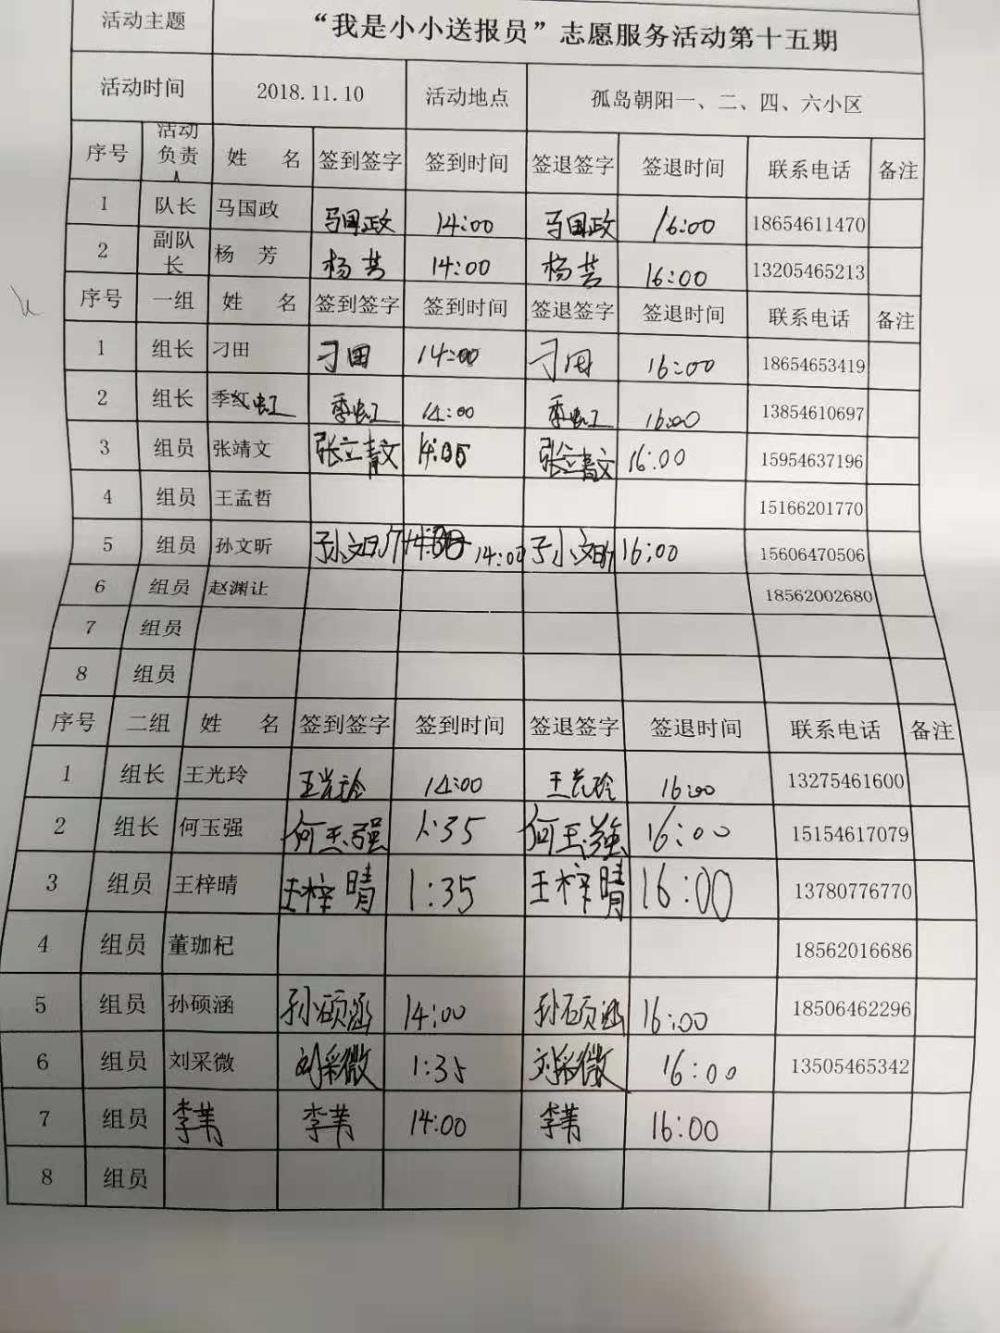 活动主题 “我是小小送报员”志愿服务活动第十五期
活动时间 2018.11.10 活动地点 孤岛朝阳一、二、四、六小区
序号 活动负责人 姓 名 签到签字 签到时间 签退签字 签退时间 联系电话 备注
1 队长 马国政 马国政 14:00 马国政 16:00 18654611470
2 副队长 杨 芳 杨芳 14:00 杨芳 16:00 13205465213
序号 一组 姓 名 签到签字 签到时间 签退签字 签退时间 联系电话 备注
1 组长 刁田 刁田 14:00 刁田 16:00 18654653419
2 组长 季虹 季虹 14:00 季虹 16:00 13854610697
3 组员 张靖文 张靖文 14:35 张靖文 16:00 15954637196
4 组员 王孟哲 15166201770
5 组员 孙文昕 孙文昕 14:00 孙文昕 16:00 15606470506
6 组员 赵渊让 18562002680
7 组员
8 组员
序号 二组 姓 名 签到签字 签到时间 签退签字 签退时间 联系电话 备注
1 组长 王光玲 王光玲 14:00 王光玲 16:00 13275461600
2 组长 何玉强 何玉强 1:35 何玉强 16:00 15154617079
3 组员 王梓晴 王梓晴 1:35 王梓晴 16:00 13780776770
4 组员 董珈杞 18562016686
5 组员 孙硕涵 孙硕涵 14:00 孙硕涵 16:00 18506462296
6 组员 刘采微 刘采微 1:35 刘采微 16:00 13505465342
7 组员 李 李 14:00 李 16:00
8 组员